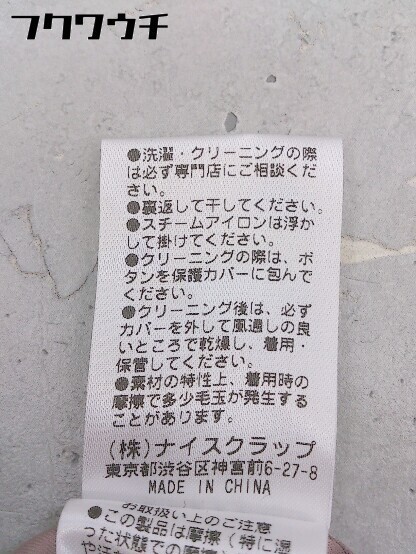 フクワウチ
●洗濯・クリーニングの際
は必ず専門店にご相談くだ
さい。
●裏返して干してください。
●スチームアイロンは浮か
して掛けてください。
●クリーニングの際は、ボ
タンを保護カバーに包んで
ください。
●クリーニング後は、必ず
カバーを外して風通しの良
いところで乾燥し、着用・
保管してください。
●素材の特性上、着用時の
摩擦で多少毛玉が発生する
ことがあります。
(株)ナイスクラップ
東京都渋谷区神宮前6-27-8
MADE IN CHINA
お取扱い上のご注意
●この製品は摩擦(特に湿
った状態での摩擦)